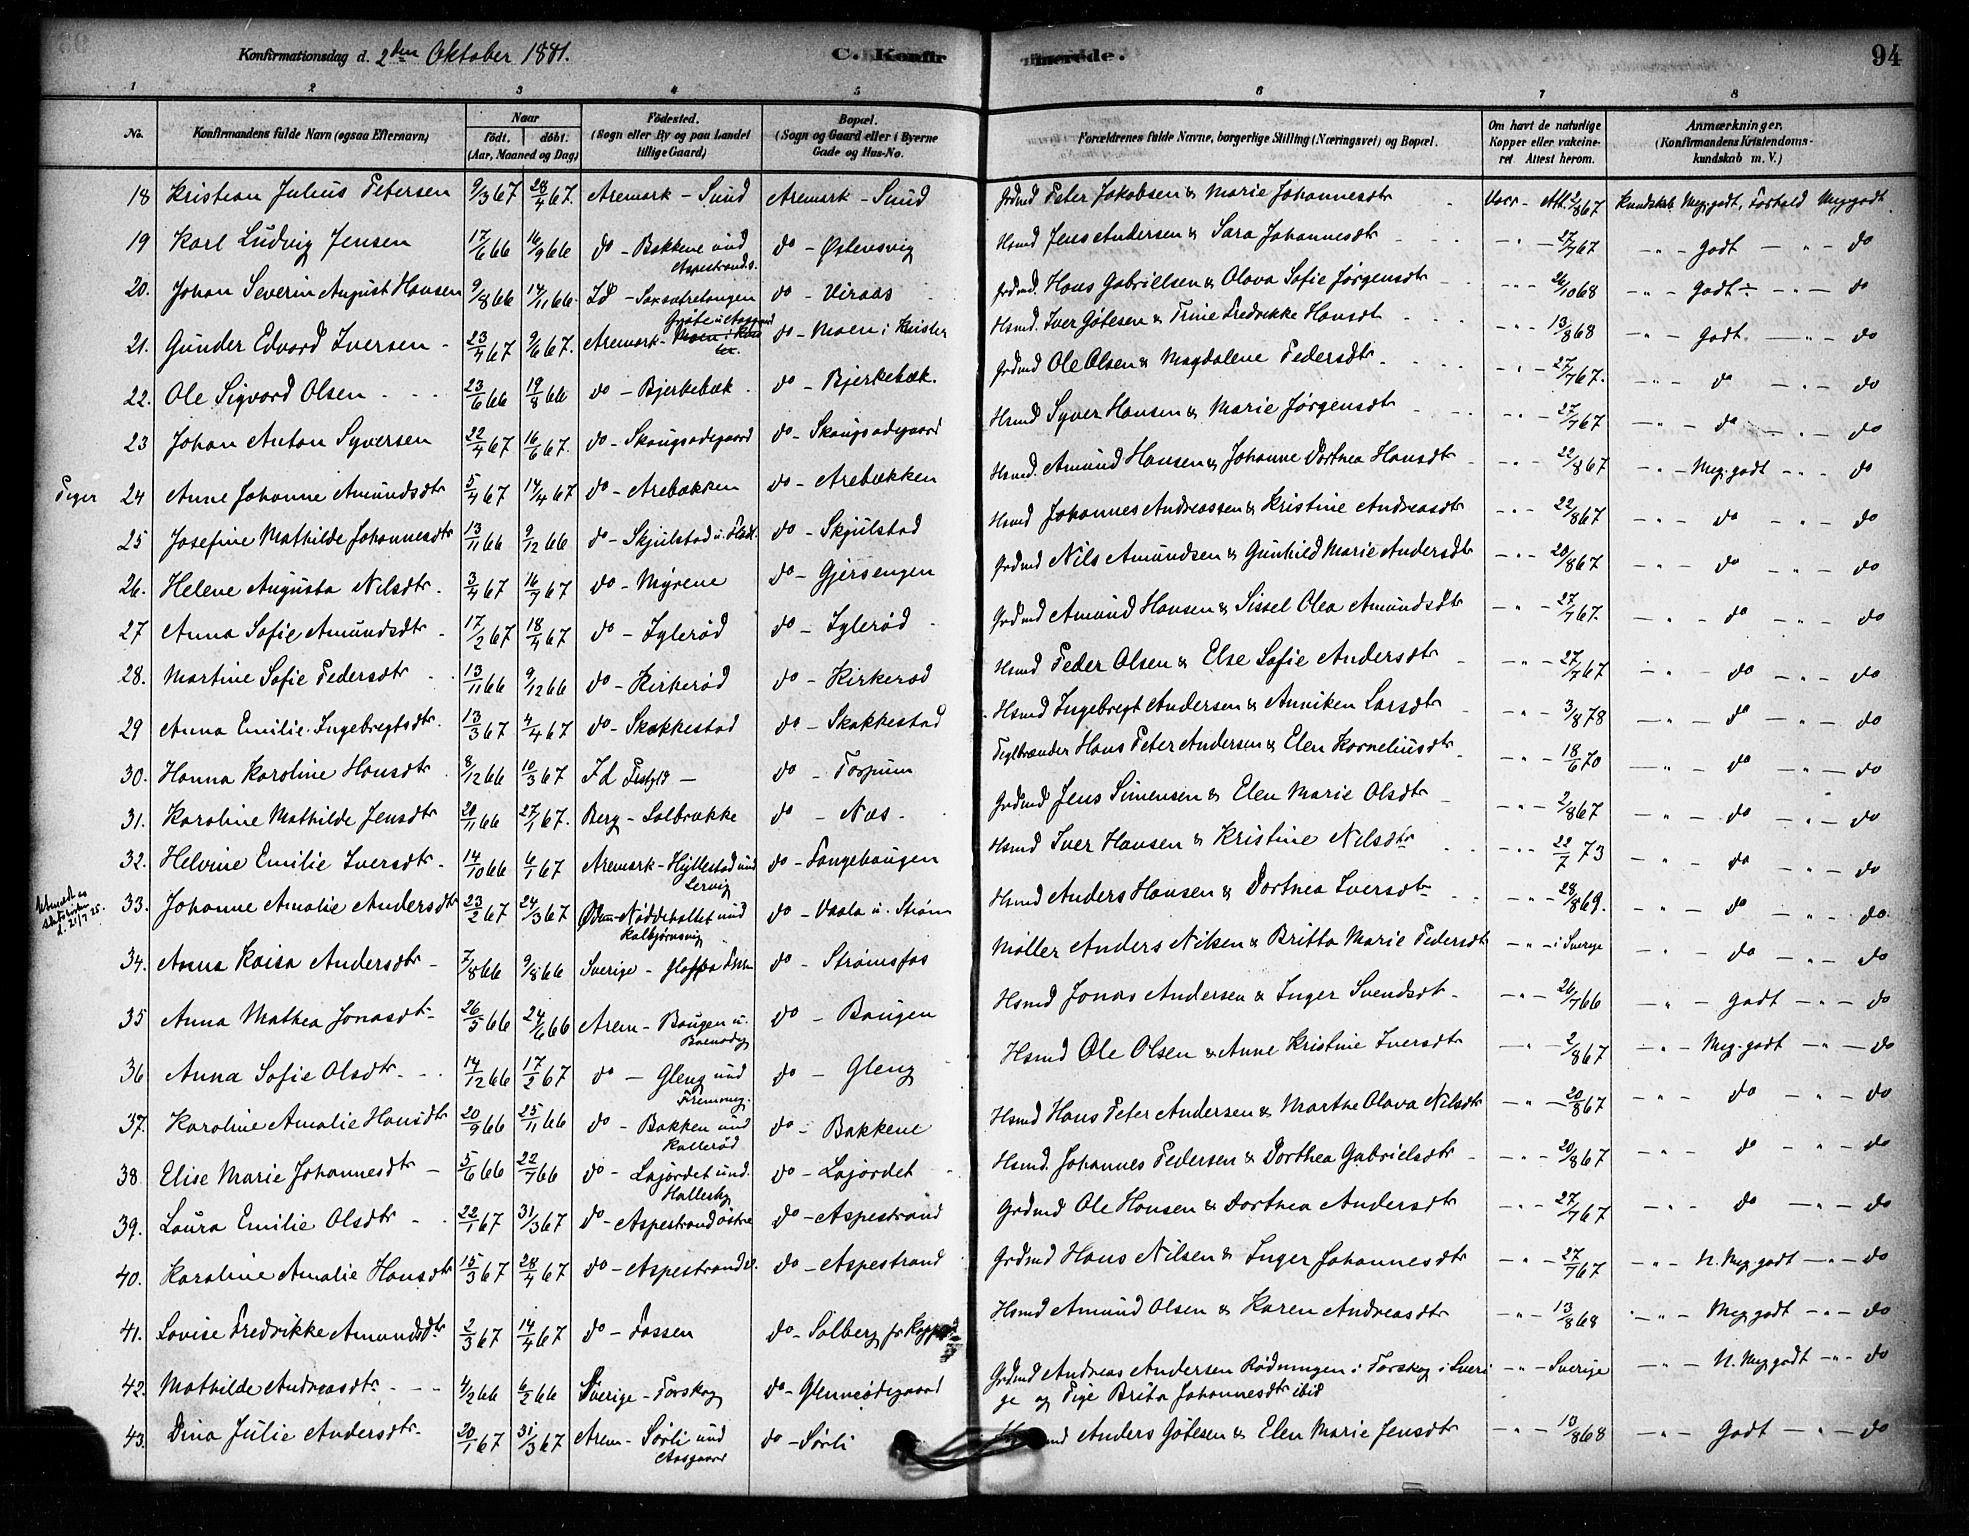 Konfirmationsdag d. 2den Oktober 1881. C. Konfirmerede. 94
1 2 3 4 5 6 7 8
No. Konfirmandens fulde Navn (ogsaa Efternavn) Naar født. døbt. (Aar, Maaned og Dag) Fødested. (Sogn eller By og paa Landet tillige Gaard) Bopæl. (Sogn og Gaard eller i Byerne Gade og Hus-No. Forældrenes fulde Navne, borgerlige Stilling (Næringsvei) og Bopæl. Om havt de naturlige Kopper eller vakcineret Attest herom. Anmærkninger. (Konfirmandens Kristendomskundskab m. V.)
18 Kristian Julius Petersen 9/3 67 28/4 67. Aremark - Sund Aremark - Sund Grdmd Peter Jakobsen & Marie Johannesdtr Vacc. - Att. 2/8 67 Kundskab Meg. godt, Forhold Meg godt
19 Karl Ludvig Jensen 17/6 66 16/9 66 do - Bakkene und Aspestrand s. do - Østensvig Hsmd Jens Andersen & Sara Johannesdtr - " - 27/7 67 - " - godt - " - do
20. Johan Severin August Hansen 9/8 66 14/11 66. Id - do - Viraas Grdmd. Hans Gabrielsen & Olava Sofie Jørgensdtr - " - 26/10 68 - " - Godt ÷ - " - do
21. Gunder Edvard Iversen - 23/4 67 9/6 67. Aremark - do - Moen i Kinster Hsmd. Iver Gøtesen & Trine Fredrikke Hansdtr - " - 13/8 68 - " - godt. - " - do
22. Ole Sigvard Olsen 23/6 66 19/8 66 do - Bjerkebæk do - Bjerkebæk. Grdmd Ole Olsen & Magdalene Pedersdtr. - " - 27/7 67. - " - do - " - do
23 Johan Anton Syversen 22/4 67 16/6 67. do - Skaugsødegaard do - Skaugsødegaard Hsmd Syver Hansen & Marie Jørgensdtr - " - 27/7 67 - " - do - " - do
Piger 24 Anne Johanne Amundsdtr 5/4 67 14/4 67 do - Arebakken do - Arebakken Hsmd. Amund Hansen & Johanne Dorthea Hansdtr - " - 22/8 67 - " - Meg. godt - " - do
25 Josefine Mathilde Johannesdtr 13/11 66 9/12 66 do - Skjulstad do - Skjulstad Hsmd Johannes Andreassen & Kristine Andreasdtr - " - 22/8 67 - " - do - " - do
26. Helene Augusta Nilsdtr. 3/4 67 16/7 67 do - Myrene do - Gjersengen Grdmd Nils Amundsen & Gunhild Marie Andersdtr - " - 20/8 67 - " - do - " - do
27 Anna Sofie Amundsdtr. 17/2 67 18/4 67 do - Iglerød do - Iglerød Grdmd Amund Hansen & Sissel Olea Amundsdtr - " - 27/7 67. - " - do - " - do
28. Martine Sofie Pedersdtr 13/11 66 9/12 66 do - Kirkerød do - Kirkerød Hsmd Peder Olsen & Else Sofie Andersdtr - " - 27/7 67 - " - do - " - do
29 Anna Emilie Ingebregtsdtr. 13/3 67 4/4 67 do - Skakkestad do - Skakkestad Hsmd Ingebregt Andersen & Anniken Larsdtr - " - 3/8 78 - " - do - " - do
30. Hanna Karoline Hansdtr 8/12 66 10/3 67 Id - do - Torpum Teglbrænder Hans Peter Andersen & Elen Korneliusdtr - " - 18/6 70 - " - do - " - do
31. Karoline Mathilde Jensdtr 20/11 66 27/1 67. Berg - Solbrække do - Næs. Grdmd Jens Simensen & Elen Marie Olsdtr - " - 2/8 67 - " - do - " - do
32. Helvine Emilie Iversdtr 14/10 66 6/1 67 Aremark - Hyllestad und Lervig do - Langehaugen Hsmd Iver Hansen & Kristine Nilsdtr - " - 22/7 73 - " - do - " - do
33. Johanne Amalie Andersdtr 23/2 67 24/3 67 Nøddeholtet und Kalbjørnsvig do - Vaala u. Strøm Hsmd Anders Hansen & Dorthea Iversdtr - " - 28/8 69. - " - do - " - do.
34. Anna Kaisa Andersdtr - 7/8 66 9/8 66 Sverige - do - Strømsfos Møller Anders Nilsen & Britta Marie Pedersdtr - " - i Sverige - " - do - " - do
35 Anna Mathea Jonasdtr 26/5 66 24/6 66 Arem - Baugen u. do - Baugen Hsmd Jonas Andersen & Inger Svendsdtr - " - 26/7 66 - " - Godt - " - do
36 Anna Sofie Olsdtr 14/12 66 17/2 67 do - Gleng und Fremmeg. do - Gleng Hsmd Ole Olsen & Anne Kristine Iversdtr - " - 2/8 67 - " - Meg. godt - " - do
37. Karoline Amalie Hansdtr 20/9 66 25/11 66 do - Bakken und Kallerød do - Bakkene Hsmd Hans Peter Andersen & Marthe Olava Nilsdtr - " - 20/8 67 - " - do - " - do
38. Elise Marie Johannesdtr - 5/6 66 22/7 66 do - Lajordet und. Hallesby do - Lajordet Hsmd. Johannes Pedersen & Dorthea Gabrielsdtr - " - 20/8 67 - " - do - " - do
39. Laura Emilie Olsdtr 22/1 67 31/3 67 do - Aspestrand østre do - Aspestrand Grdmd Ole Hansen & Dorthea Andersdtr - " - 27/7 67 - " - do - " - do
40. Karoline Amalie Hansdtr 15/3 67 28/4 67 do - Aspestrand do - Aspestrand Grdmd Hans Nilsen & Inger Johannesdtr - " - 27/7 67 - " - N. Meg. godt - " - do
41. Lovise Fredrikke Amundsdtr 2/3 67 14/4 67 do - Fossen do - Solberg Hsmd Amund Olsen & Karen Andreasdtr - " - 13/8 68 - " - Meg. godt - " - do
42. Mathilde Andreasdtr. 4/2 66 6/2 66 Sverige - Torskog do - Glenneødegaard Grdmd Andreas Andersen Rødningen i Torskog i Sveri
ge og Pige Brita Johannesdtr ibid - " - Sverige - " - N. Meg godt - " - do
43. Dina Julie Andersdtr. 20/1 67 31/3 67 Arem - Sørli und Aasgaard do - Sørli Anders Gøtesen & Elen Marie Jensdtr - " - 13/8 68 - " - Godt - " - do